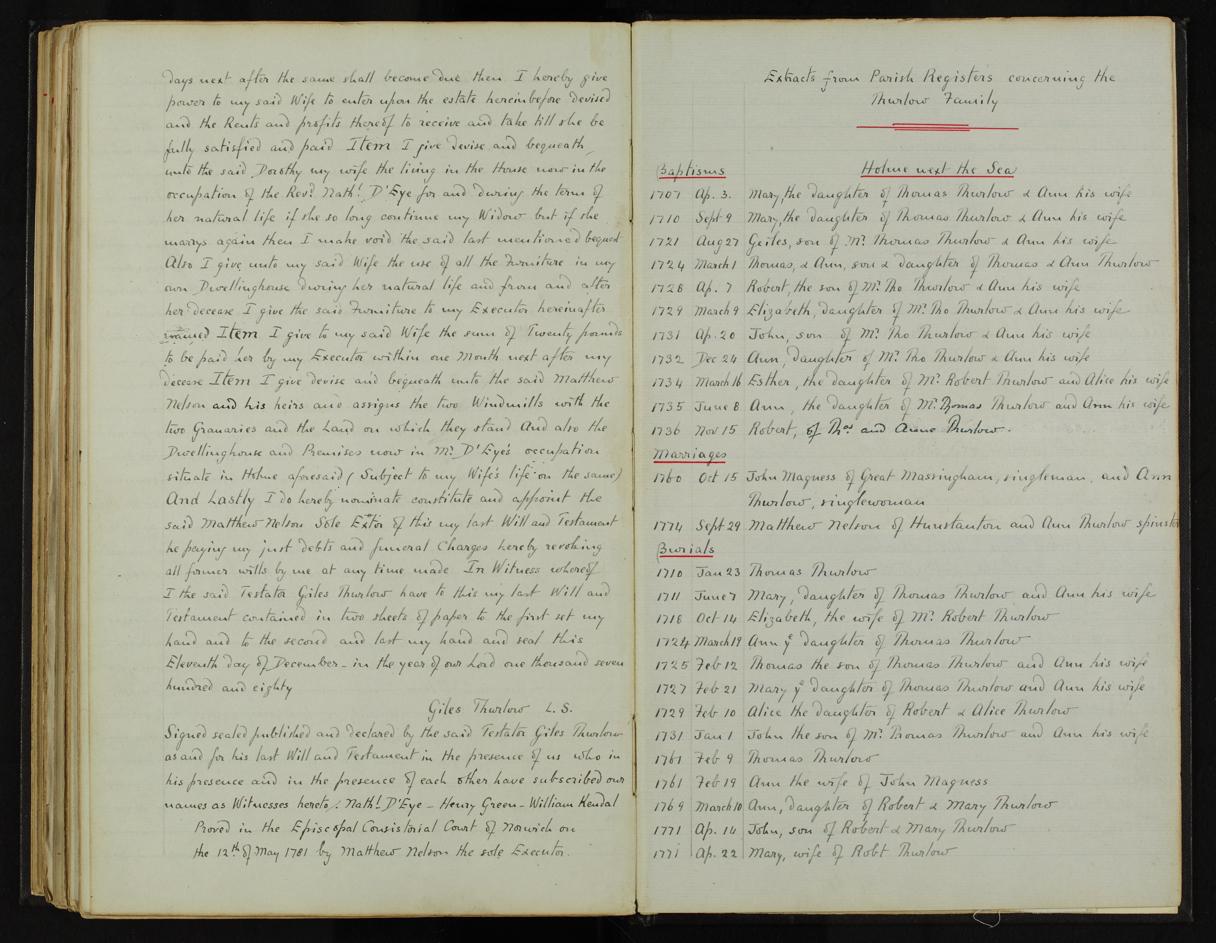 days next after the same shall become due then I hereby give
power to my said Wife to enter upon the estate hereinbefore devised
and the Rents and profits thereof to receive and take till she be
fully satisfied and paid Item I give devise and bequeath
unto the said Dorothy my wife the living in the House now in the
occupation of the Revd. Nathl. D'Eye for and during the term of
her natural life if she so long continue my Widow but if she
marrys again then I make void the said last mentioned bequest
Also I give unto my said Wife the use of all the Furniture in my
own Dwellinghouse during her natural life and from and after
her decease I give the said Furniture to my Executor hereinafter
named Item I give to my said Wife the sum of Twenty pounds
to be paid her by my Executor within one Month next after my
decease Item I give devise and bequeath unto the said Matthew
Nelson and his heirs and assigns the two Windmills with the
two Granaries and the Land on which they stand And also the
Dwellinghouse and Premises now in Mr. D'Eye's occupation
situate in Holme aforesaid (Subject to my Wife's life on the same)
And Lastly I do hereby nominate constitute and appoint the
said Matthew Nelson Sole Extor of this my last Will and Testament
he paying my just debts and funeral Charges hereby revoking
all former wills by me at any time made In Witness whereof
I the said Testator Giles Thurlow have to this my last Will and
Testament contained in two sheets of paper to the first set my
hand and to the second and last my hand and seal this
Eleventh day of December – in the year of our Lord one thousand seven
hundred and eighty
Giles Thurlow L.S.
Signed sealed published and declared by the said Testator Giles Thurlow
as and for his last Will and Testament in the presence of us who in
his presence and in the presence of each other have subscribed our
names as Witnesses hereto: Nathl. D'Eye – Henry Green – William Kendal
Proved in the Episcopal Consistorial Court of Norwich on
the 12th of May 1781 by Matthew Nelson the sole Executor.
Extracts from Parish Registers concerning the
Thurlow Family
Baptisms Holme next the Sea
1707 Ap. 3. Mary, the daughter of Thomas Thurlow & Ann his wife
1710 Sept 9 Mary, the daughter of Thomas Thurlow & Ann his wife
1721 Aug 27 Geiles, son of Mr. Thomas Thurlow & Ann his wife
1724 March 1 Thomas, & Ann, son & daughter of Thomas & Ann Thurlow
1728 Ap. 7 Robert, the son of Mr. Tho Thurlow & Ann his wife
1729 March 9 Elizabeth, daughter of Mr. Tho Thurlow & Ann his wife
1731 Ap. 20 John, son of Mr. Tho Thurlow & Ann his wife
1732 Dec 24 Ann, daughter of Mr. Tho Thurlow & Ann his wife
1734 March 16 Esther, the daughter of Mr. Robert Thurlow and Alice his wife
1735 June 8 Ann, the daughter of Mr. Thomas Thurlow and Ann his wife
1736 Nov 15 Robert, of Thos. and Anne Thurlow.
Marriages
1760 Oct 15 John Magness of Great Massingham, singleman, and Ann
Thurlow, singlewoman
1774 Sept 29 Matthew Nelson of Hunstanton and Ann Thurlow spinster
Burials
1710 Jan 23 Thomas Thurlow
1711 June 7 Mary, daughter of Thomas Thurlow and Ann his wife
1718 Oct 14 Elizabeth, the wife of Mr. Robert Thurlow
1724 March 19 Ann ye daughter of Thomas Thurlow
1725 Feb 12 Thomas the son of Thomas Thurlow and Ann his wife
1727 Feb 21 Mary ye daughter of Thomas Thurlow and Ann his wife
1729 Feb 10 Alice the daughter of Robert & Alice Thurlow
1731 Jan 1 John the son of Mr. Thomas Thurlow and Ann his wife
1761 Feb 9 Thomas Thurlow
1761 Feb 19 Ann the wife of John Magness
1769 March 10 Ann, daughter of Robert & Mary Thurlow
1771 Ap. 14 John, son of Robert & Mary Thurlow
1771 Ap. 22 Mary, wife of Robt Thurlow